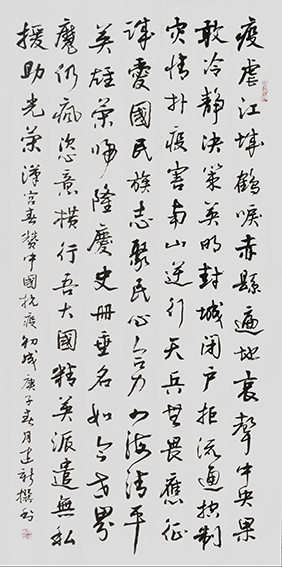 疫虐江城鶴唳赤縣遍地哀聲中央果
敢冷静决策英明封城闭户拒流通控制
灾情扑疫害南山逆行天兵無畏應征
愛國民族志聚民心合力四海清平
英雄荣归隆慶史册垂名如今世界
魔仍瘋恣意横行吾大國精英派遣無私
援助光荣 漢宫春赞中國抗疫初成 庚子春月建新撰书